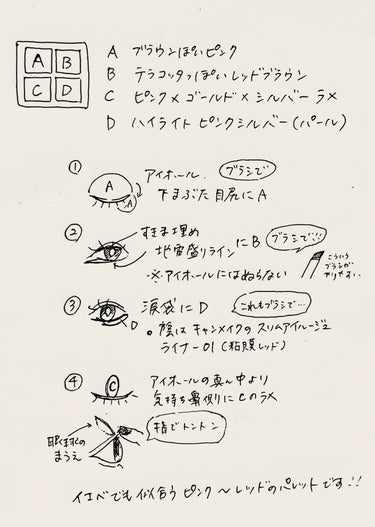 A B
C D
A ブラウンぽいピンク
B テラコッタっぽいレッドブラウン
C ピンク×ゴールド×シルバーラメ
D ハイライト ピンクシルバー(パール)
① アイホール. ブラシで
下まぶた目尻にA
A
A
② すきま埋め
地雷盛りライン にB ブラシで!!
※アイホールにはぬらない
こういう
ブラシが
やりやすい.
③ 涙袋にD これもブラシで…
D
。陰はキャンメイクのスリムアイルージュ
ライナー01(粘膜レッド)
④ アイホールの真ん中より
気持ち鼻側にCのラメ
C
指でトントン
眼球の
まうえ
イエベでも似合うピンク〜レッドのパレットです!!